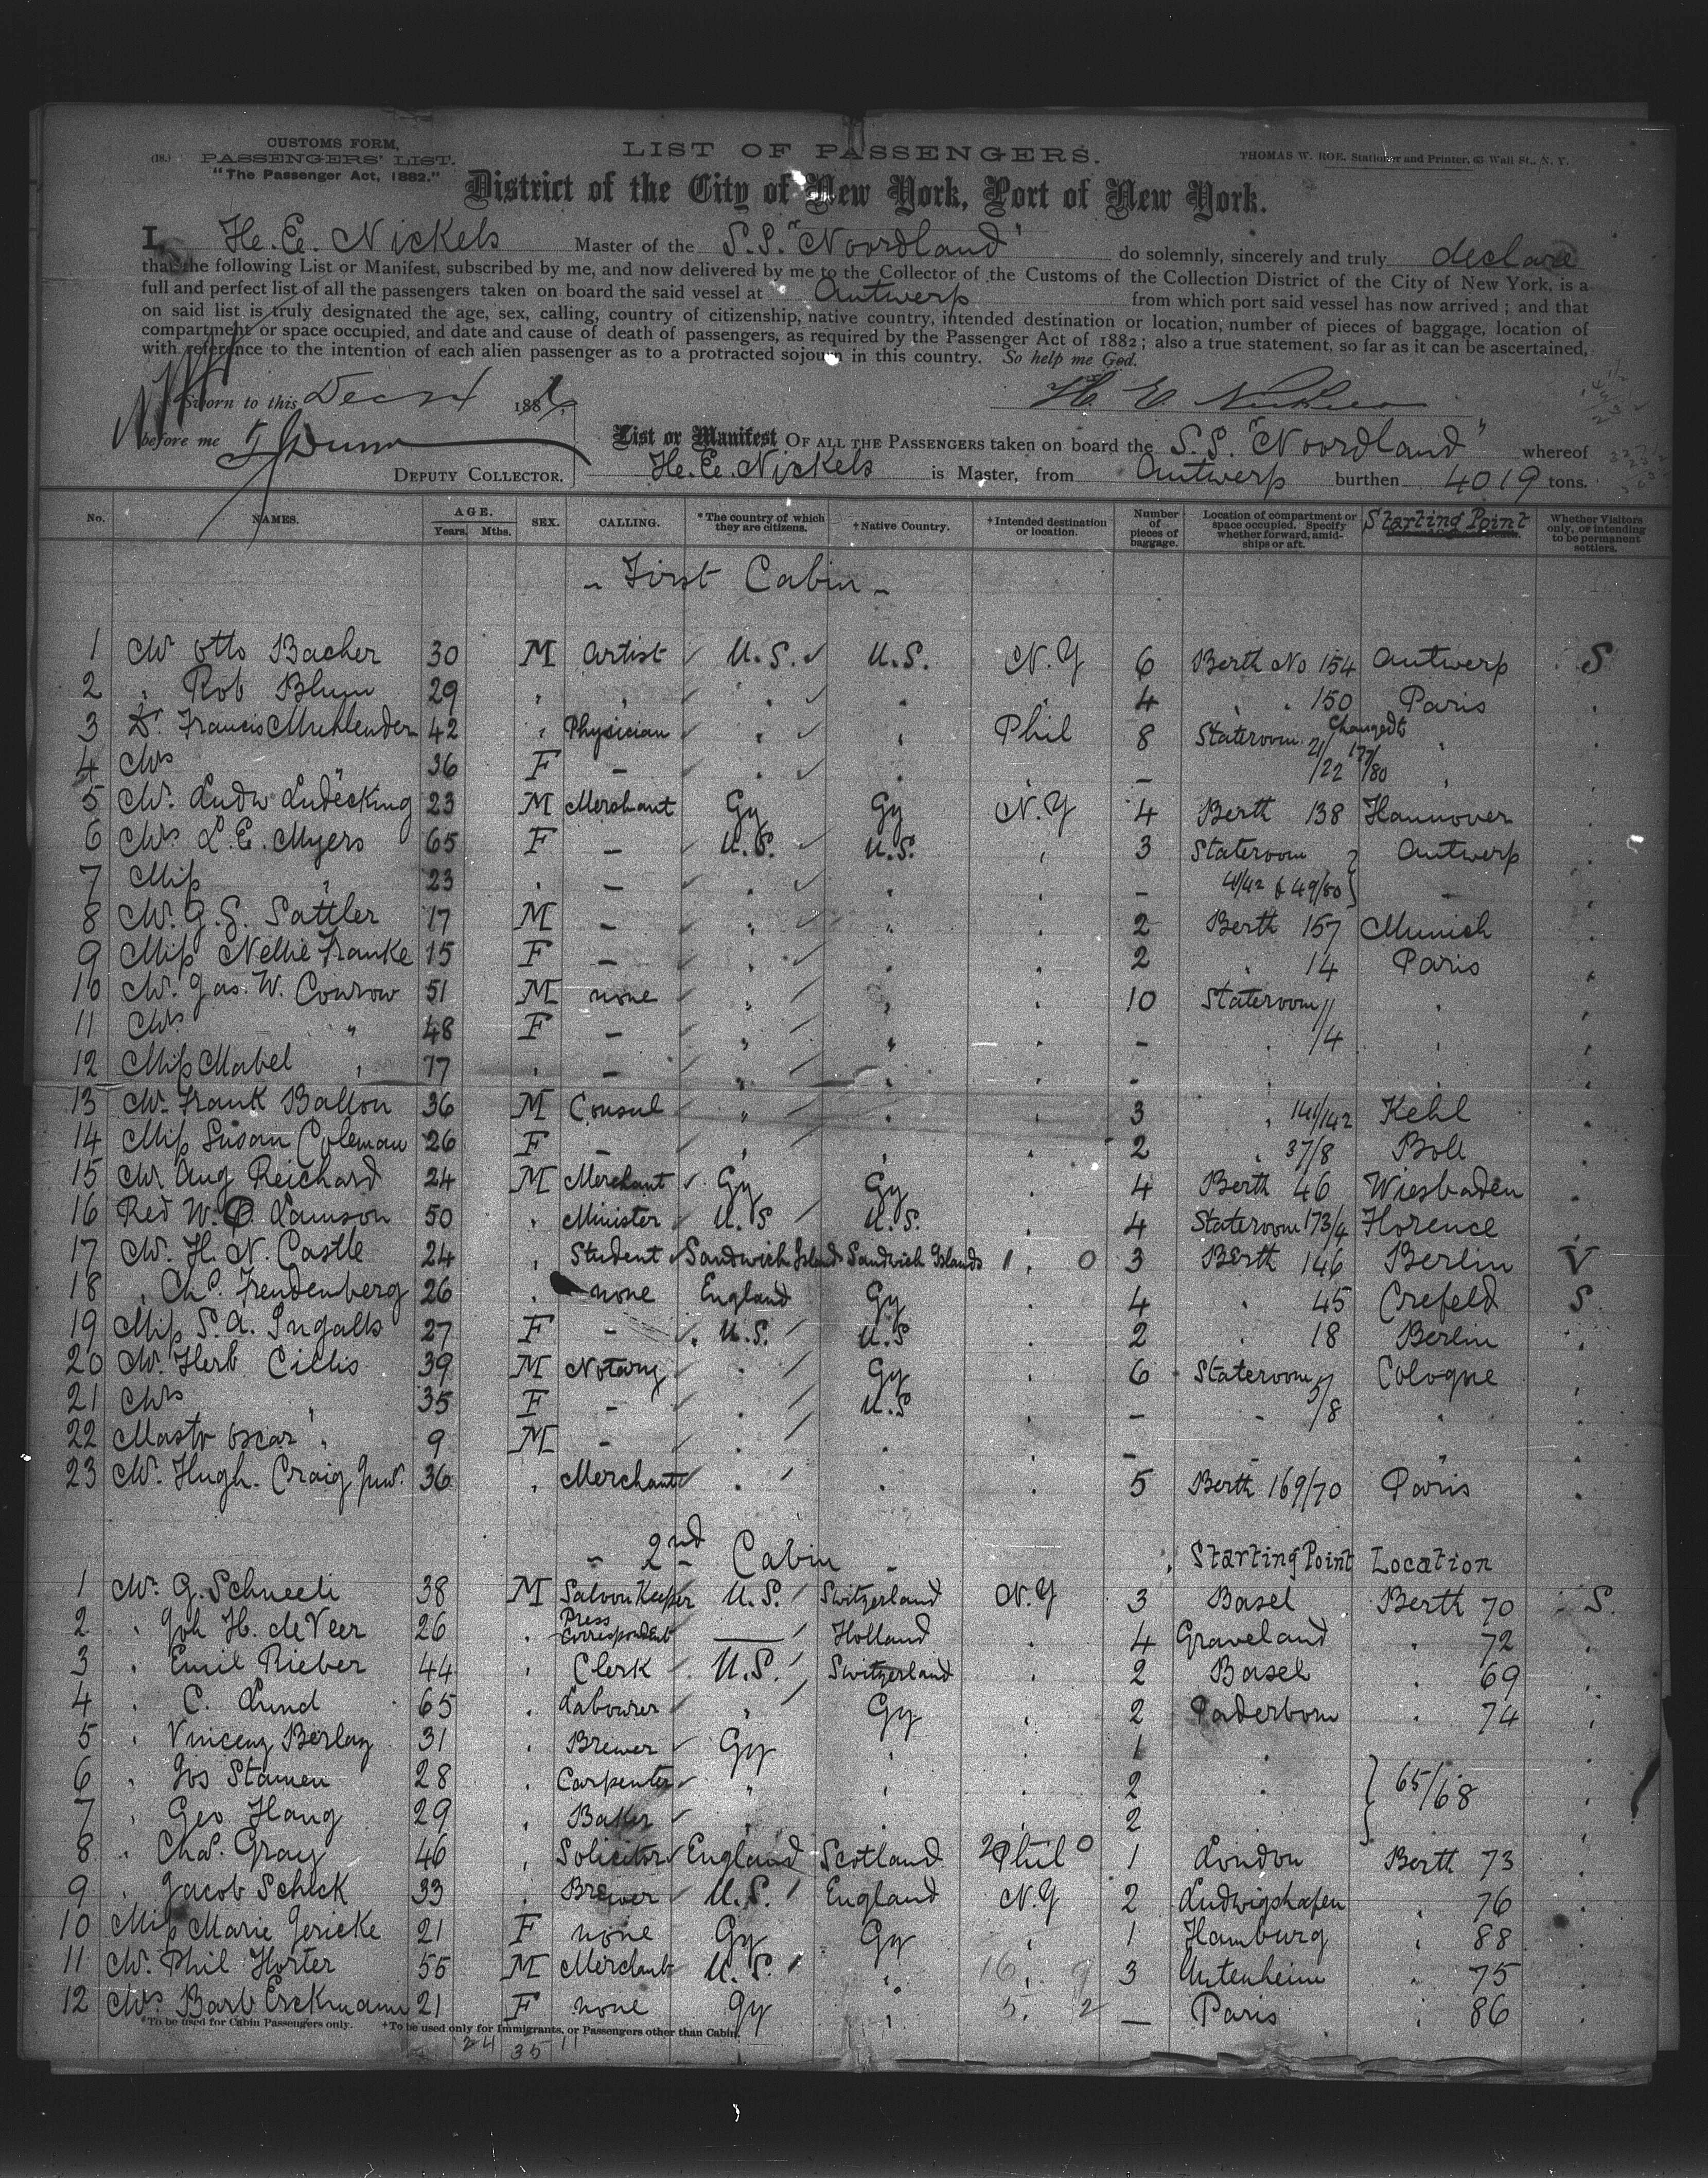 CUSTOMS FORM,
(18.) PASSENGERS' LIST.
"The Passenger Act, 1882."
LIST OF PASSENGERS.
THOMAS W. ROE, Stationer and Printer, 63 Wall St., N. Y.
District of the City of New York, Port of New York.
I, He. Ee. Nickels Master of the S.S. "Noordland" do solemnly, sincerely and truly declare
that the following List or Manifest, subscribed by me, and now delivered by me to the Collector of the Customs of the Collection District of the City of New York, is a
full and perfect list of all the passengers taken on board the said vessel at Antwerp from which port said vessel has now arrived; and that
on said list is truly designated the age, sex, calling, country of citizenship, native country, intended destination or location, number of pieces of baggage, location of
compartment or space occupied, and date and cause of death of passengers, as required by the Passenger Act of 1882; also a true statement, so far as it can be ascertained,
with reference to the intention of each alien passenger as to a protracted sojourn in this country. So help me God.
Sworn to this Dec 188
before me
DEPUTY COLLECTOR.
List or Manifest OF ALL THE PASSENGERS taken on board the S.S. "Noordland" whereof
He. Ee. Nickels is Master, from Antwerp burthen 4019 tons.
No. NAMES. AGE. Years. Mths. SEX. CALLING. *The country of which they are citizens. †Native Country. †Intended destination or location. Number of pieces of baggage. Location of compartment or space occupied. Specify whether forward, amidships or aft. Starting Point Whether Visitors only, or intending to be permanent settlers.
- First Cabin -
1 Mr Otto Bacher 30 M Artist U.S. U.S. N.Y 6 Berth No 154 Antwerp S
2 " Rob Blum 29 " " " " " 4 " " 150 Paris "
3 Dr. Francis Muhlender 42 " Physician " " Phil 8 Stateroom 21/22 Changed to 177/80 " "
4 Mrs " 36 F - " " " - "
5 Mr. Ludw Ludecking 23 M Merchant Gy Gy N.Y 4 Berth 138 Hannover "
6 Mrs L. E. Myers 65 F - U.S. U.S. " 3 Stateroom Antwerp "
7 Miss " 23 " - " " " - 41/42 & 49/50 - "
8 Mr. G. S. Sattler 17 M - " " " 2 Berth 157 Munich "
9 Miss Nellie Franke 15 F - " " " 2 " 14 Paris "
10 Mr. Jas. W. Conrow 51 M none " " " 10 Stateroom 11/14 " "
11 Mrs " 48 F - " " " - " " "
12 Miss Mabel " 17 " - " " " - " " "
13 Mr. Frank Ballon 36 M Consul " " " 3 " 141/142 Kehl "
14 Miss Susan Coleman 26 F - " " " 2 " 37/8 Boll "
15 Mr. Aug Reichard 24 M Merchant Gy Gy " 4 Berth 46 Wiesbaden "
16 Red W. O Lamson 50 " Minister U.S U.S. " 4 Stateroom 173/4 Florence "
17 Mr. H. N. Castle 24 " Student Sandwich Island Sandwich Islands 1 " 0 3 Berth 146 Berlin V
18 " Chs. Freudenberg 26 " none England Gy " 4 " 45 Crefeld S
19 Miss S. A. Ingalls 27 F - U.S. U.S " 2 " 18 Berlin "
20 Mr. Herb Cillis 39 M Notary " Gy " 6 Stateroom 5/8 Cologne "
21 Mrs " 35 F - " U.S " - - " "
22 Mastr Oscar " 9 M - " " " - - " "
23 Mr. Hugh. Craig Junr. 36 " Merchant " " " 5 Berth 169/70 Paris "
- 2nd Cabin - Starting Point Location
1 Mr. G. Schneeli 38 M Saloon Keeper U.S. Switzerland N.Y 3 Basel Berth 70 S.
2 " Joh H. de Veer 26 " Press Correspondent — Holland " 4 Graveland " 72 "
3 " Emil Rieber 44 " Clerk U.S. Switzerland " 2 Basel " 69 "
4 " C. Lund 65 " Labourer " Gy " 2 Paderborn " 74 "
5 " Vincenz Berlag 31 " Brewer Gy " " 1 " "
6 " Jos Stamen 28 " Carpenter " " " 2 " 65/68 "
7 " Geo Haug 29 " Baker " " " 2 "
8 " Chas. Gray 46 " Solicitor England Scotland 2 Phil 0 1 London Berth 73 "
9 " Jacob Schick 33 " Brewer U.S. England N.Y 2 Ludwigshafen " 76 "
10 Miss Marie Gericke 21 F none Gy Gy " 1 Hamburg " 88 "
11 Mr. Phil Horter 55 M Merchant U.S. " 16 " 9 3 Untenheim " 75 "
12 Mrs Barb Erckmann 21 F none Gy " 5. 2 — Paris " 86 "
*To be used for Cabin Passengers only. †To be used only for Immigrants, or Passengers other than Cabin.
24 35 11